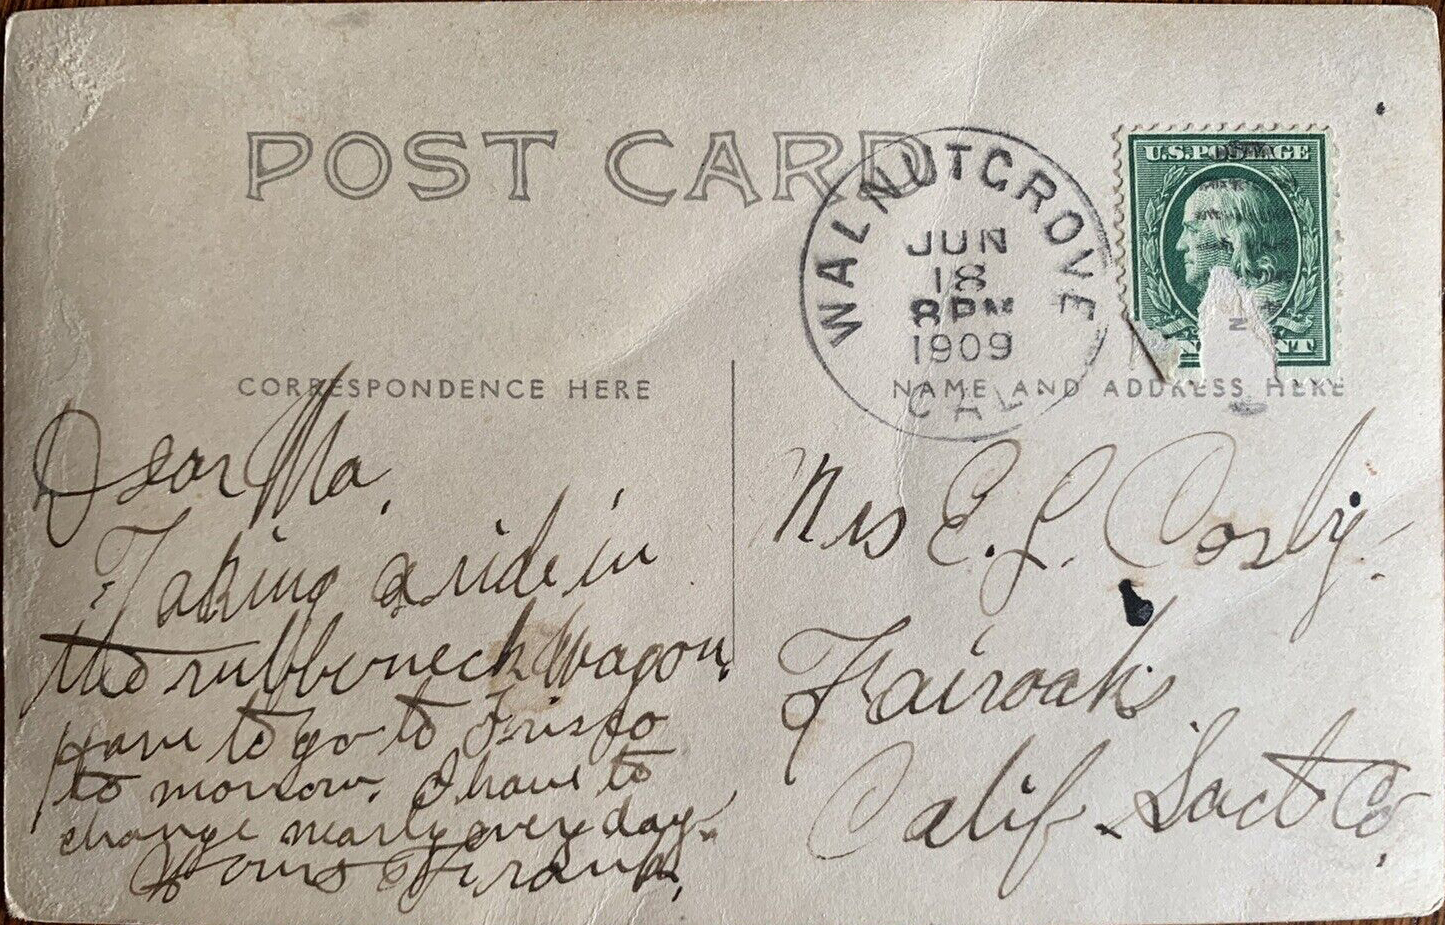 POST CARD
WALNUT GROVE
JUN
18
8PM
1909
CAL
U.S. POSTAGE
CORRESPONDENCE HERE
NAME AND ADDRESS HERE
Dear Ma,
Taking a ride in
the rubberneck wagon.
Have to go to Frisco
to morrow. I have to
change nearly every day.
Yours Frank.
Mrs E. L. Cosby.
Fairoaks
Calif. Sact Co,